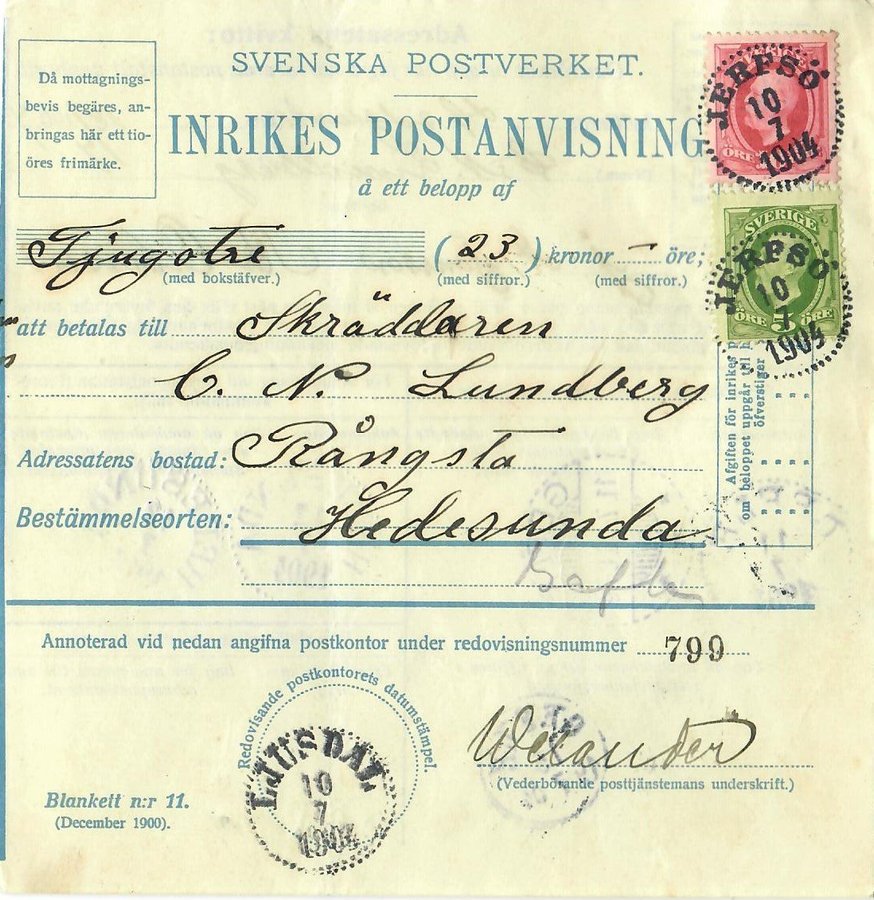 SVENSKA POSTVERKET.
INRIKES POSTANVISNING
å ett belopp af
Då mottagnings-
bevis begäres, an-
bringas här ett tio-
öres frimärke.
JERFSÖ
10
7
1904
ÖRE
Tjugotre (23) kronor — öre;
(med bokstäfver.) (med siffror.) (med siffror.)
SVERIGE
JERFSÖ
10
7
1904
5
ÖRE ÖRE
att betalas till Skräddaren
C. N. Lundberg
Adressatens bostad: Rångsta
Bestämmelseorten: Hedesunda
Afgiften för inrikes
om beloppet uppgår till
öfverstiger
Annoterad vid nedan angifna postkontor under redovisningsnummer 799
Redovisande postkontorets datumstämpel.
LJUSDAL
10
7
1904
Welander
(Vederbörande posttjänstemans underskrift.)
Blankett n:r 11.
(December 1900).